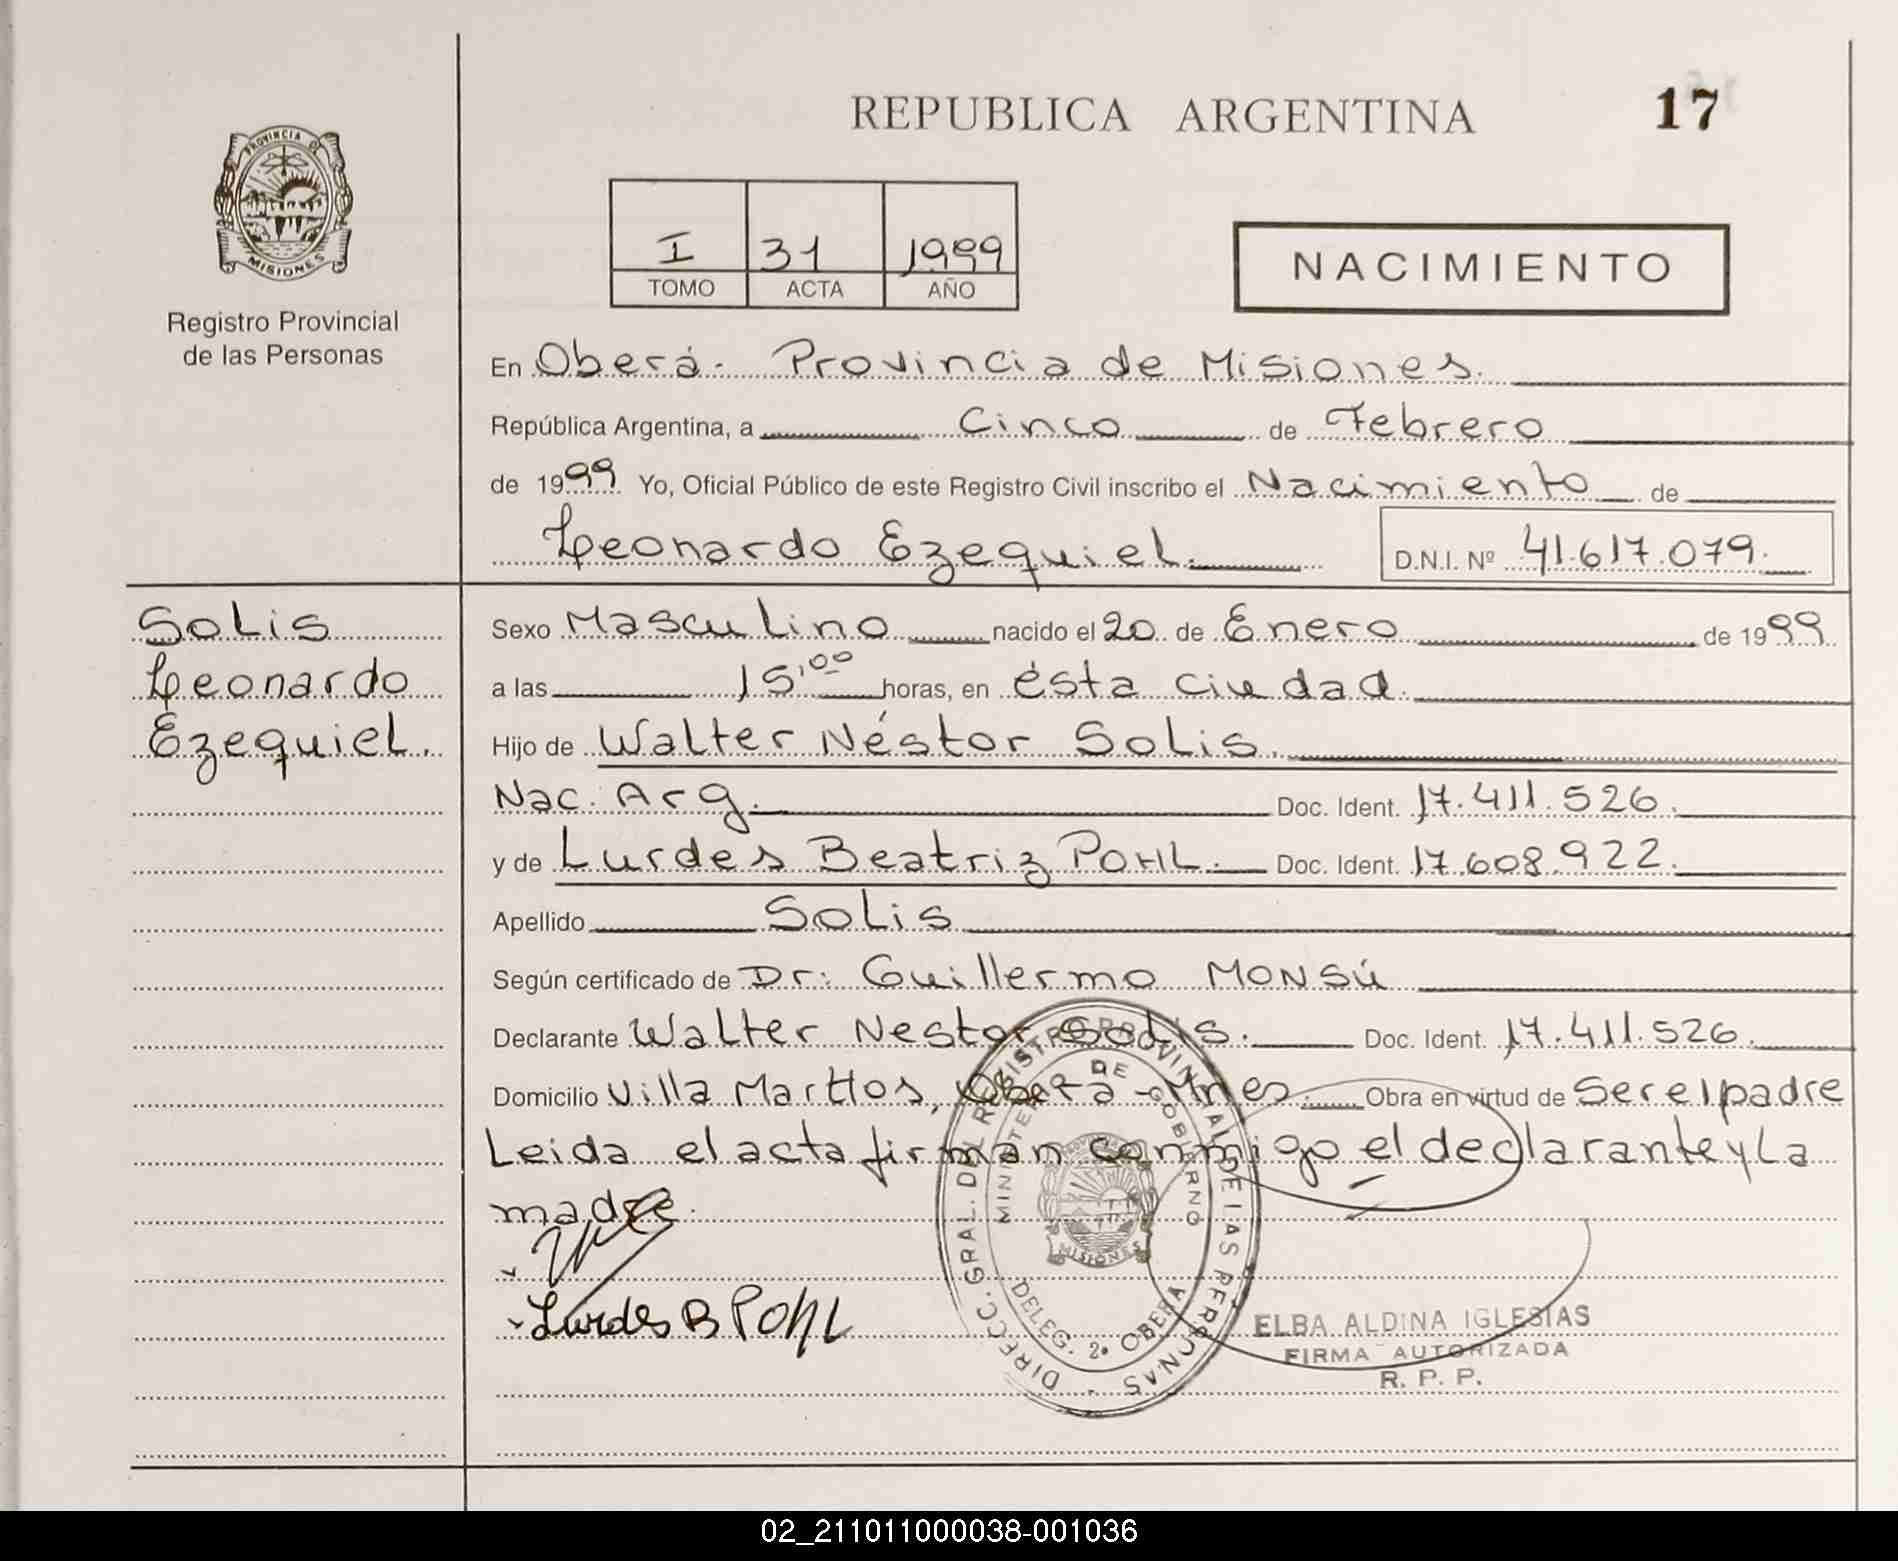 REPUBLICA ARGENTINA
17
PROVINCIA DE
MISIONES
Registro Provincial
de las Personas
I 31 1999
TOMO ACTA AÑO
NACIMIENTO
En Oberá - Provincia de Misiones.
República Argentina, a Cinco de Febrero
de 1999 Yo, Oficial Público de este Registro Civil inscribo el Nacimiento de
Leonardo Ezequiel. D.N.I. Nº 41.617.079.
Solis
Leonardo
Ezequiel.
Sexo Masculino nacido el 20 de Enero de 1999
a las 15,00 horas, en ésta ciudad.
Hijo de Walter Néstor Solis.
Nac. Arg. Doc. Ident. 17.411.526.
y de Lurdes Beatriz POHL. Doc. Ident. 17.608.922.
Apellido Solis
Según certificado de Dr: Guillermo MONSÚ
Declarante Walter Nestor Solis. Doc. Ident. 17.411.526.
Domicilio Villa Martos, Oberá - Mnes. Obra en virtud de Ser el padre
Leida el acta firman conmigo el declarante y la
madre.
Lurdes B POHL
DIRECC. GRAL. DEL REGISTRO PROVINCIAL DE LAS PERSONAS
MINISTERIO DE GOBIERNO
MISIONES
DELEG. 2ª OBERA
ELBA ALDINA IGLESIAS
FIRMA AUTORIZADA
R. P. P.
02_211011000038-001036